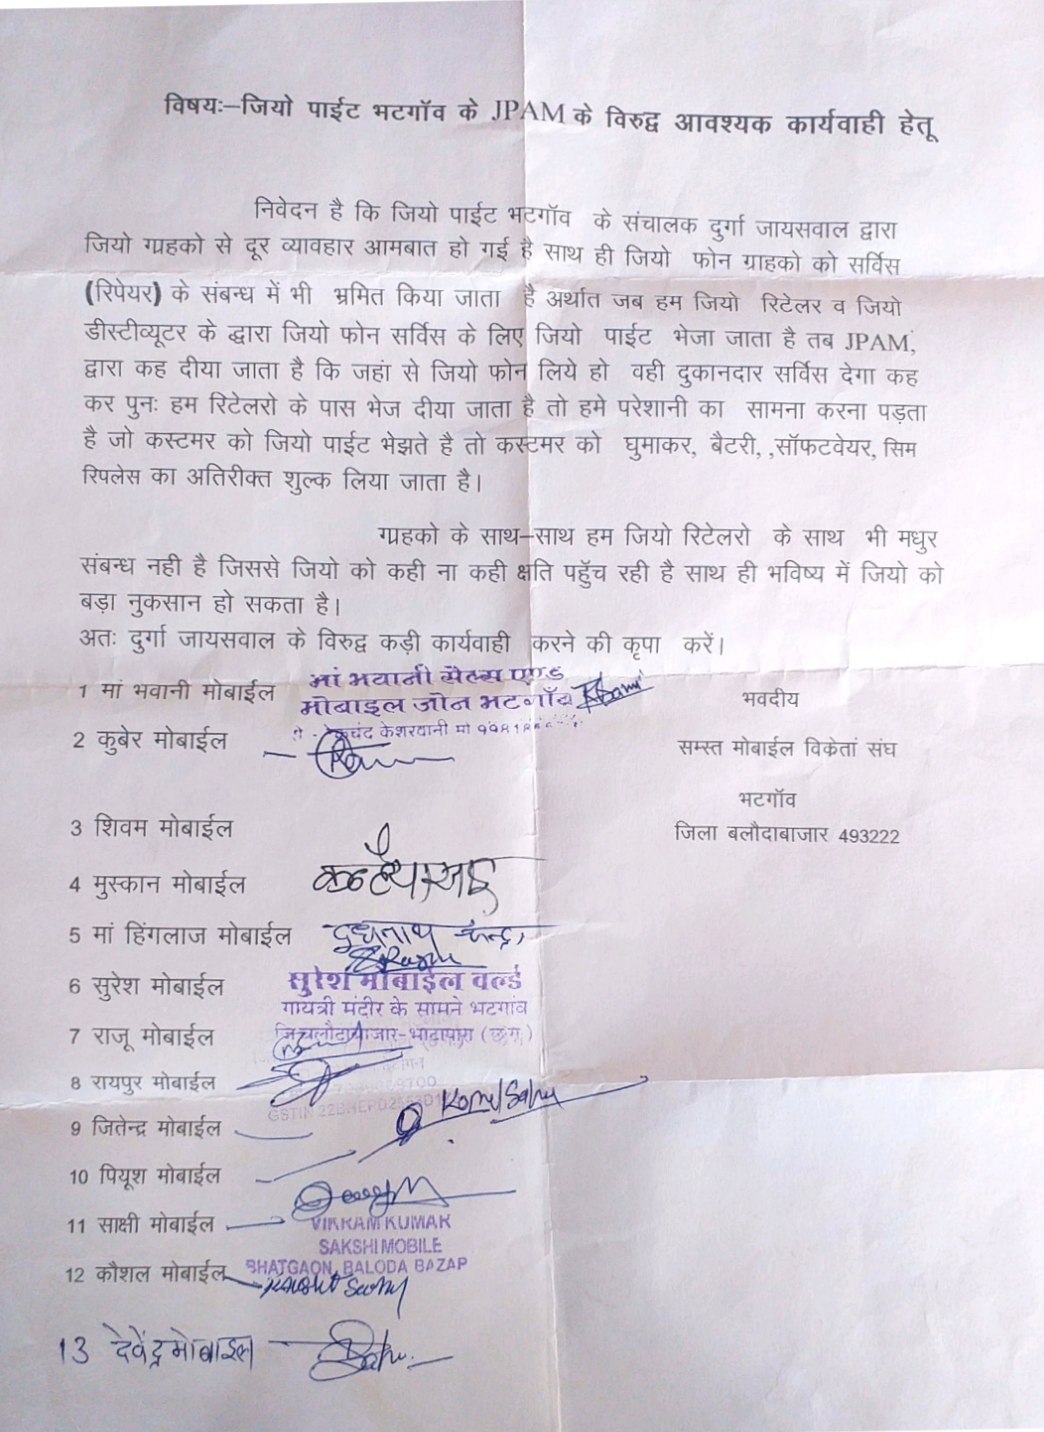 विषयः–जियो पाईट भटगॉव के JPAM के विरुद्व आवश्यक कार्यवाही हेतू
निवेदन है कि जियो पाईट भटगॉव के संचालक दुर्गा जायसवाल द्वारा
जियो ग्राहको से दूर व्यावहार आमबात हो गई है साथ ही जियो फोन ग्राहको को सर्विस
(रिपेयर) के संबन्ध में भी भ्रमित किया जाता है अर्थात जब हम जियो रिटेलर व जियो
डीस्टीव्यूटर के द्धारा जियो फोन सर्विस के लिए जियो पाईट भेजा जाता है तब JPAM,
द्वारा कह दीया जाता है कि जहां से जियो फोन लिये हो वही दुकानदार सर्विस देगा कह
कर पुनः हम रिटेलरो के पास भेज दीया जाता है तो हमे परेशानी का सामना करना पड़ता
है जो कस्टमर को जियो पाईट भेझते है तो कस्टमर को घुमाकर, बैटरी, ,सॉफटवेयर, सिम
रिपलेस का अतिरीक्त शुल्क लिया जाता है।
ग्राहको के साथ–साथ हम जियो रिटेलरो के साथ भी मधुर
संबन्ध नही है जिससे जियो को कही ना कही क्षति पहुँच रही है साथ ही भविष्य में जियो को
बड़ा नुकसान हो सकता है।
अतः दुर्गा जायसवाल के विरुद्व कड़ी कार्यवाही करने की कृपा करें।
1 मां भवानी मोबाईल
मां भवानी सेल्स एण्ड
मोबाइल जोन भटगाँव
केशरवानी मो
भवदीय
2 कुबेर मोबाईल
सम्स्त मोबाईल विक्रेतां संघ
भटगॉव
3 शिवम मोबाईल
जिला बलौदाबाजार 493222
4 मुस्कान मोबाईल
5 मां हिंगलाज मोबाईल दुधनाथ चन्द्रा
6 सुरेश मोबाईल
सुरेश मोबाईल वर्ल्ड
गायत्री मंदीर के सामने भटगांव
जि.बलौदाबाजार-भाटापारा (छ.ग.)
7 राजू मोबाईल
8 रायपुर मोबाईल
Komal Sahu
9 जितेन्द्र मोबाईल
10 पियूश मोबाईल
11 साक्षी मोबाईल
VIKRAM KUMAR
SAKSHI MOBILE
BHATGAON, BALODA BAZAR
12 कौशल मोबाईल
13 देवेंद्र मोबाइल